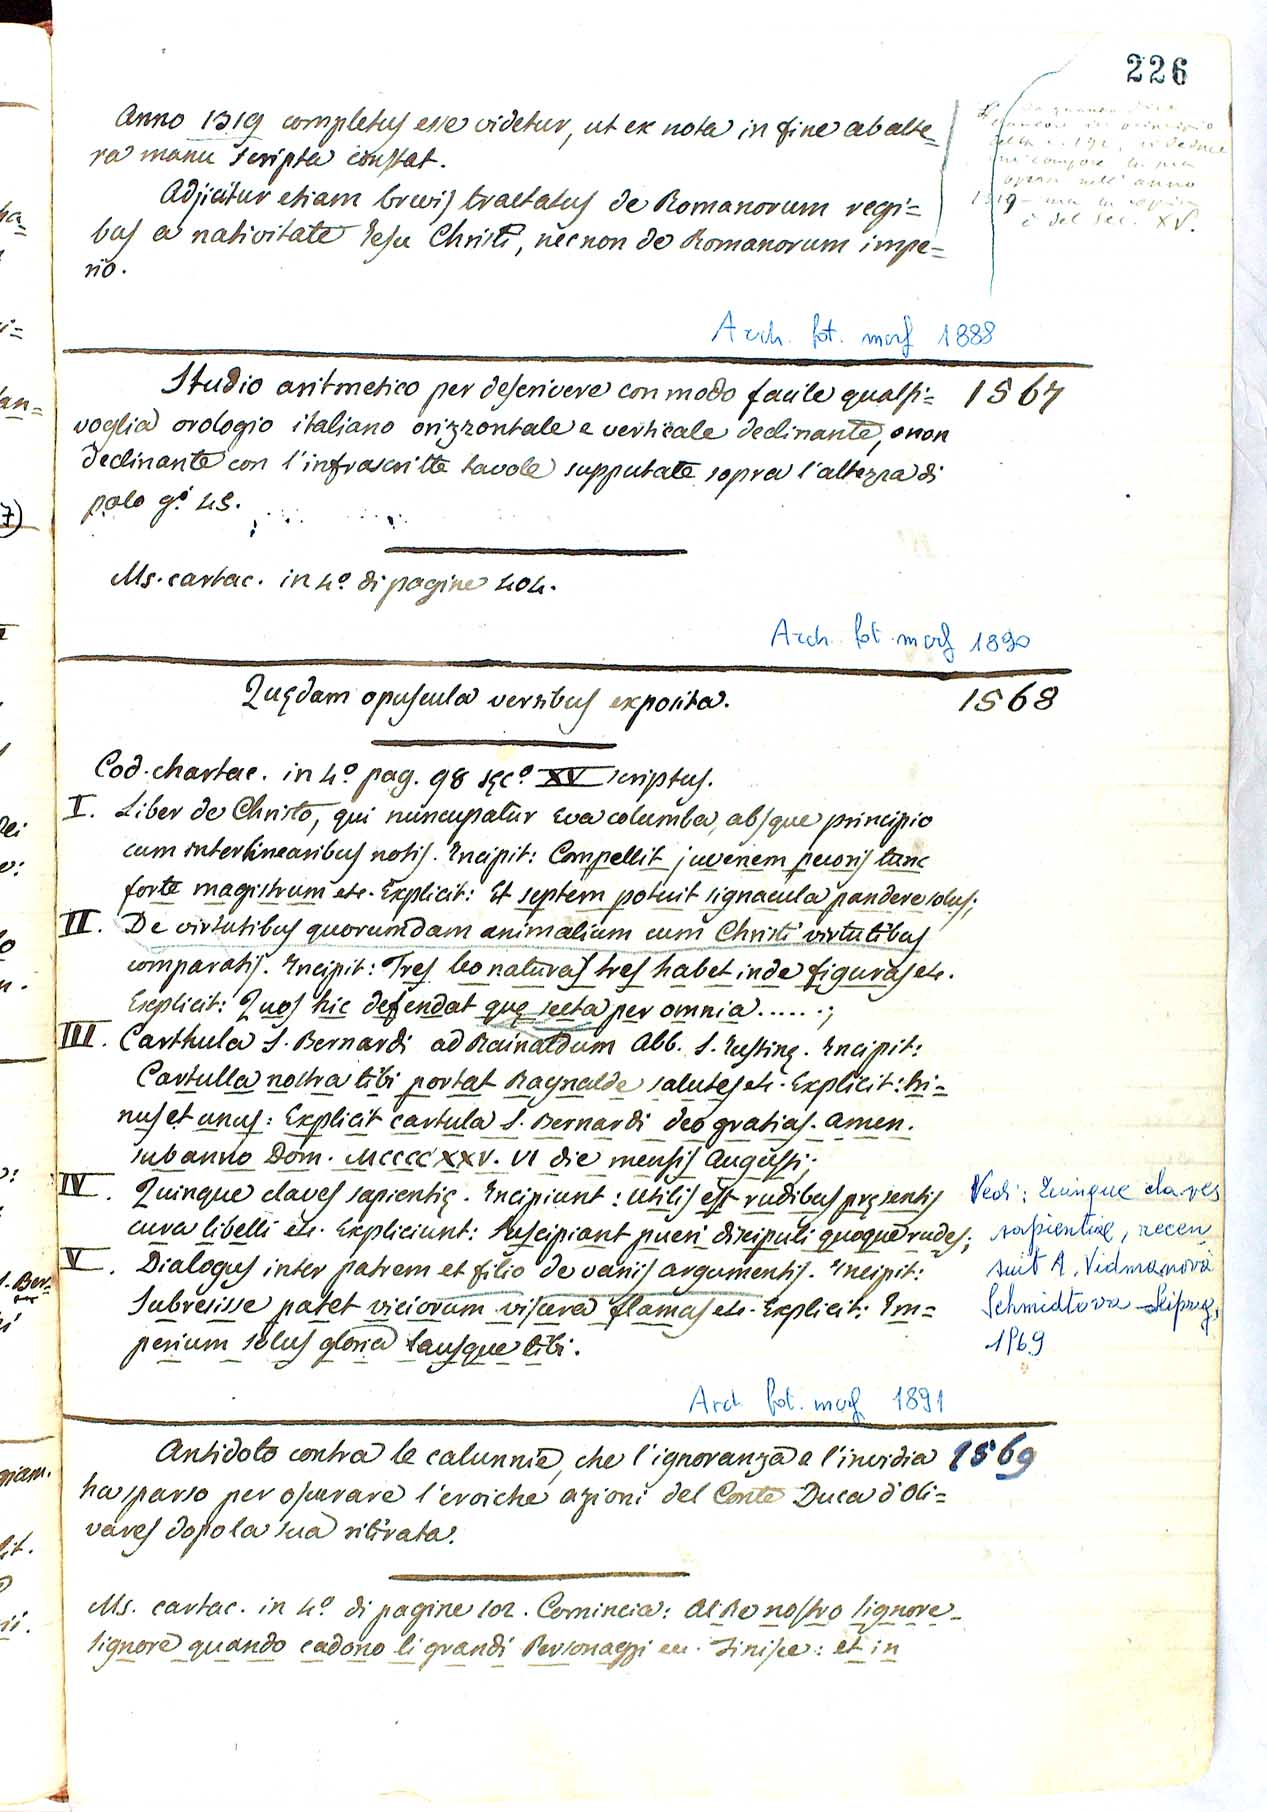 226
Anno 1319 completus esse videtur, ut ex nota in fine ab alte=
ra manu scripta constat.
Adjicitur etiam brevis tractatus de Romanorum regi=
bus a nativitate Jesu Christi, necnon de Romanorum impe=
rio.
in principio
nell' anno
1319
è del sec. XV.
Arch. fot. mosf 1888
Studio aritmetico per descrivere con modo facile qualsi= 1567
voglia orologio italiano orizzontale e verticale declinante, o non
declinante con l'infrascritte tavole supputate sopra l'altezza di
polo g.i 45.
Ms. cartac. in 4.o di pagine 404.
Arch. fot. mosf 1890
Quędam opuscula versibus exposita. 1568
Cod. chartac. in 4.o pag. 98 sęc.o XV scriptus.
I. Liber de Christo, qui nuncupatur Eva columba, absque principio
cum interlinearibus notis. Incipit: Compellit juvenem pecoris tunc
forte magistrum etc. Explicit: Et septem potuit signacula pandere solus;
II. De virtutibus quorumdam animalium cum Christi virtutibus
comparatis. Incipit: Tres leo naturas tres habet inde figuras etc.
Explicit: Quos hic defendat quę secta per omnia......;
III. Carthula S. Bernardi ad Rainaldum Abb. S. Justinę. Incipit:
Cartulla nostra tibi portat Raynalde salutes etc. Explicit: tri=
nus et unus: Explicit cartula S. Bernardi deo gratias. Amen.
sub anno Dom. MCCCCXXV. VI die mensis Augusti;
IV. Quinque claves sapientię. Incipiunt: Utilis est rudibus pręsentis
cura libelli etc. Expliciunt: Suscipiant pueri discipuli quoque rudes;
V. Dialogus inter patrem et filio de variis argumentis. Incipit:
Subresisse patet viciorum viscera flamas etc. Explicit: Im=
perium solus gloria lausque tibi.
Vedi: Quinque claves
sapientiae, recen
suit A. Vidmanová
Schmidtova - Leipzig,
1969
Arch fot. mosf 1891
Antidoto contra le calunnie, che l'ignoranza e l'invidia 1569
ha sparso per oscurare l'eroiche azioni del Conte Duca d'Oli=
vares dopo la sua ritirata.
Ms. cartac. in 4.o di pagine 102. Comincia: Al Re nostro signore_
signore quando cadono li grandi Personaggi ecc. Finisce: et in